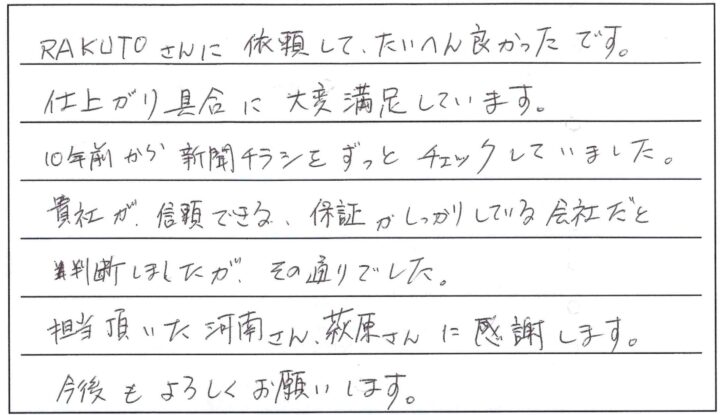 RAKUTOさんに依頼して、たいへん良かったです。
仕上がり具合に大変満足しています。
10年前から新聞チラシをずっとチェックしていました。
貴社が、信頼できる、保証がしっかりしている会社だと
判断しましたが、その通りでした。
担当頂いた河南さん、萩原さんに感謝します。
今後もよろしくお願いします。